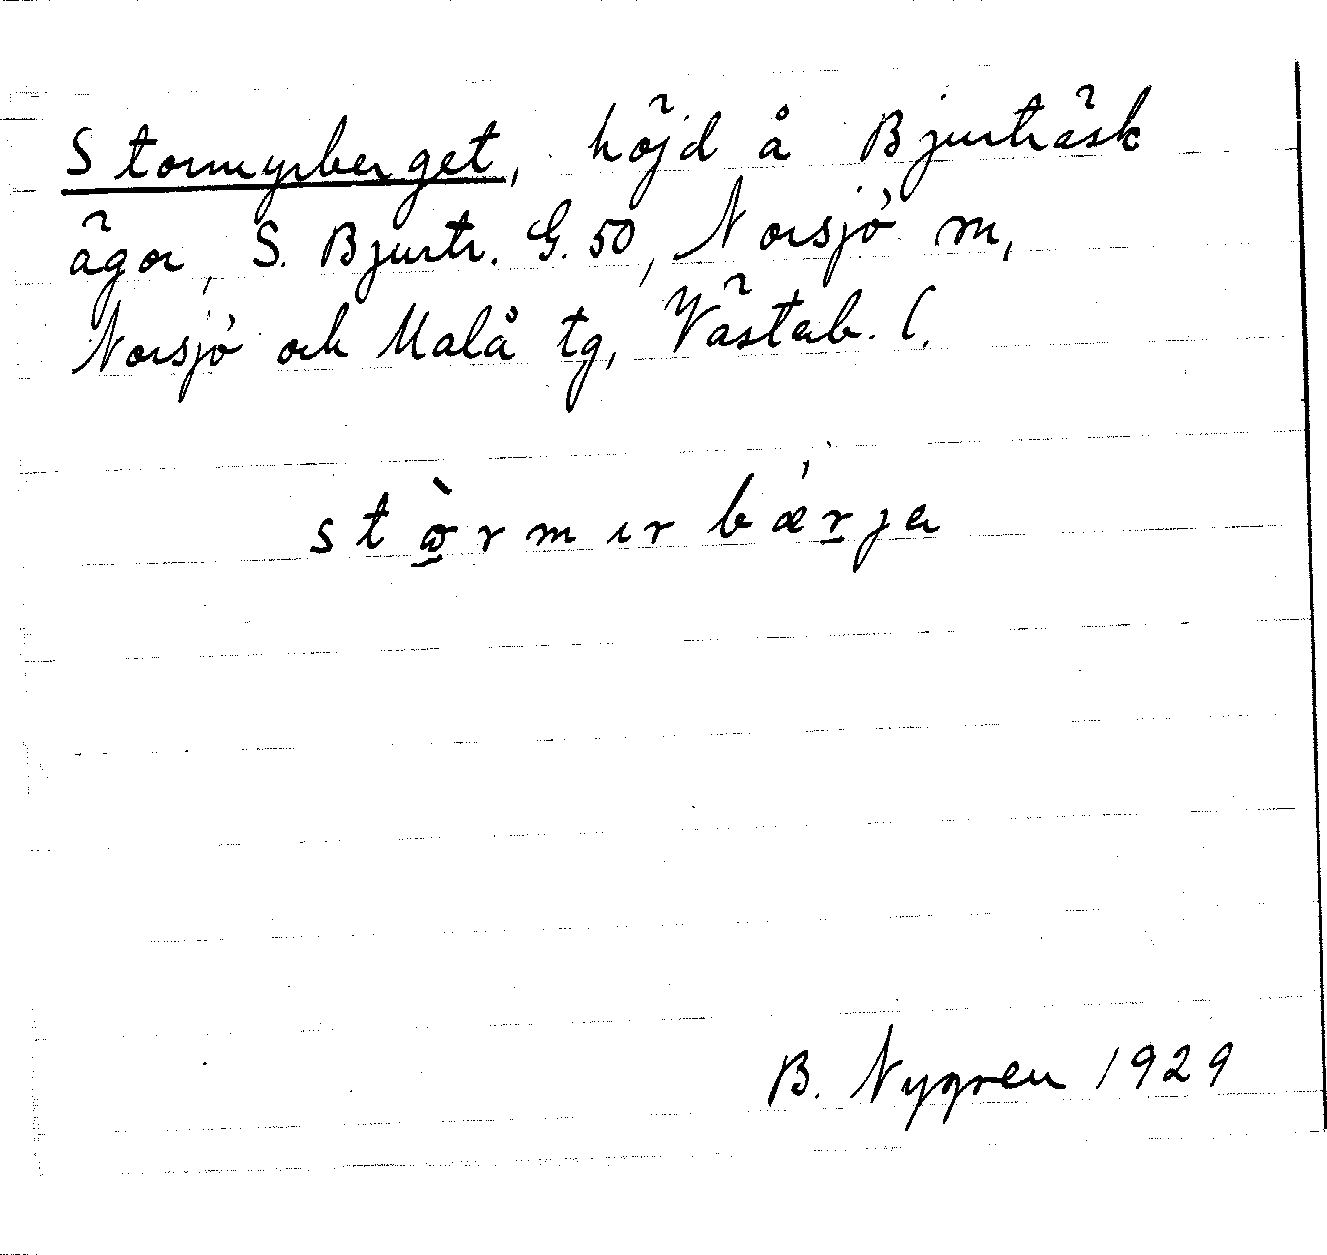 Stormyrberget, höjd å Bjurträsk
ägor, S. Bjurtr. G. 50, Norsjö m,
Norsjö och Malå tg, Västerb. l.
B. Nygren 1929